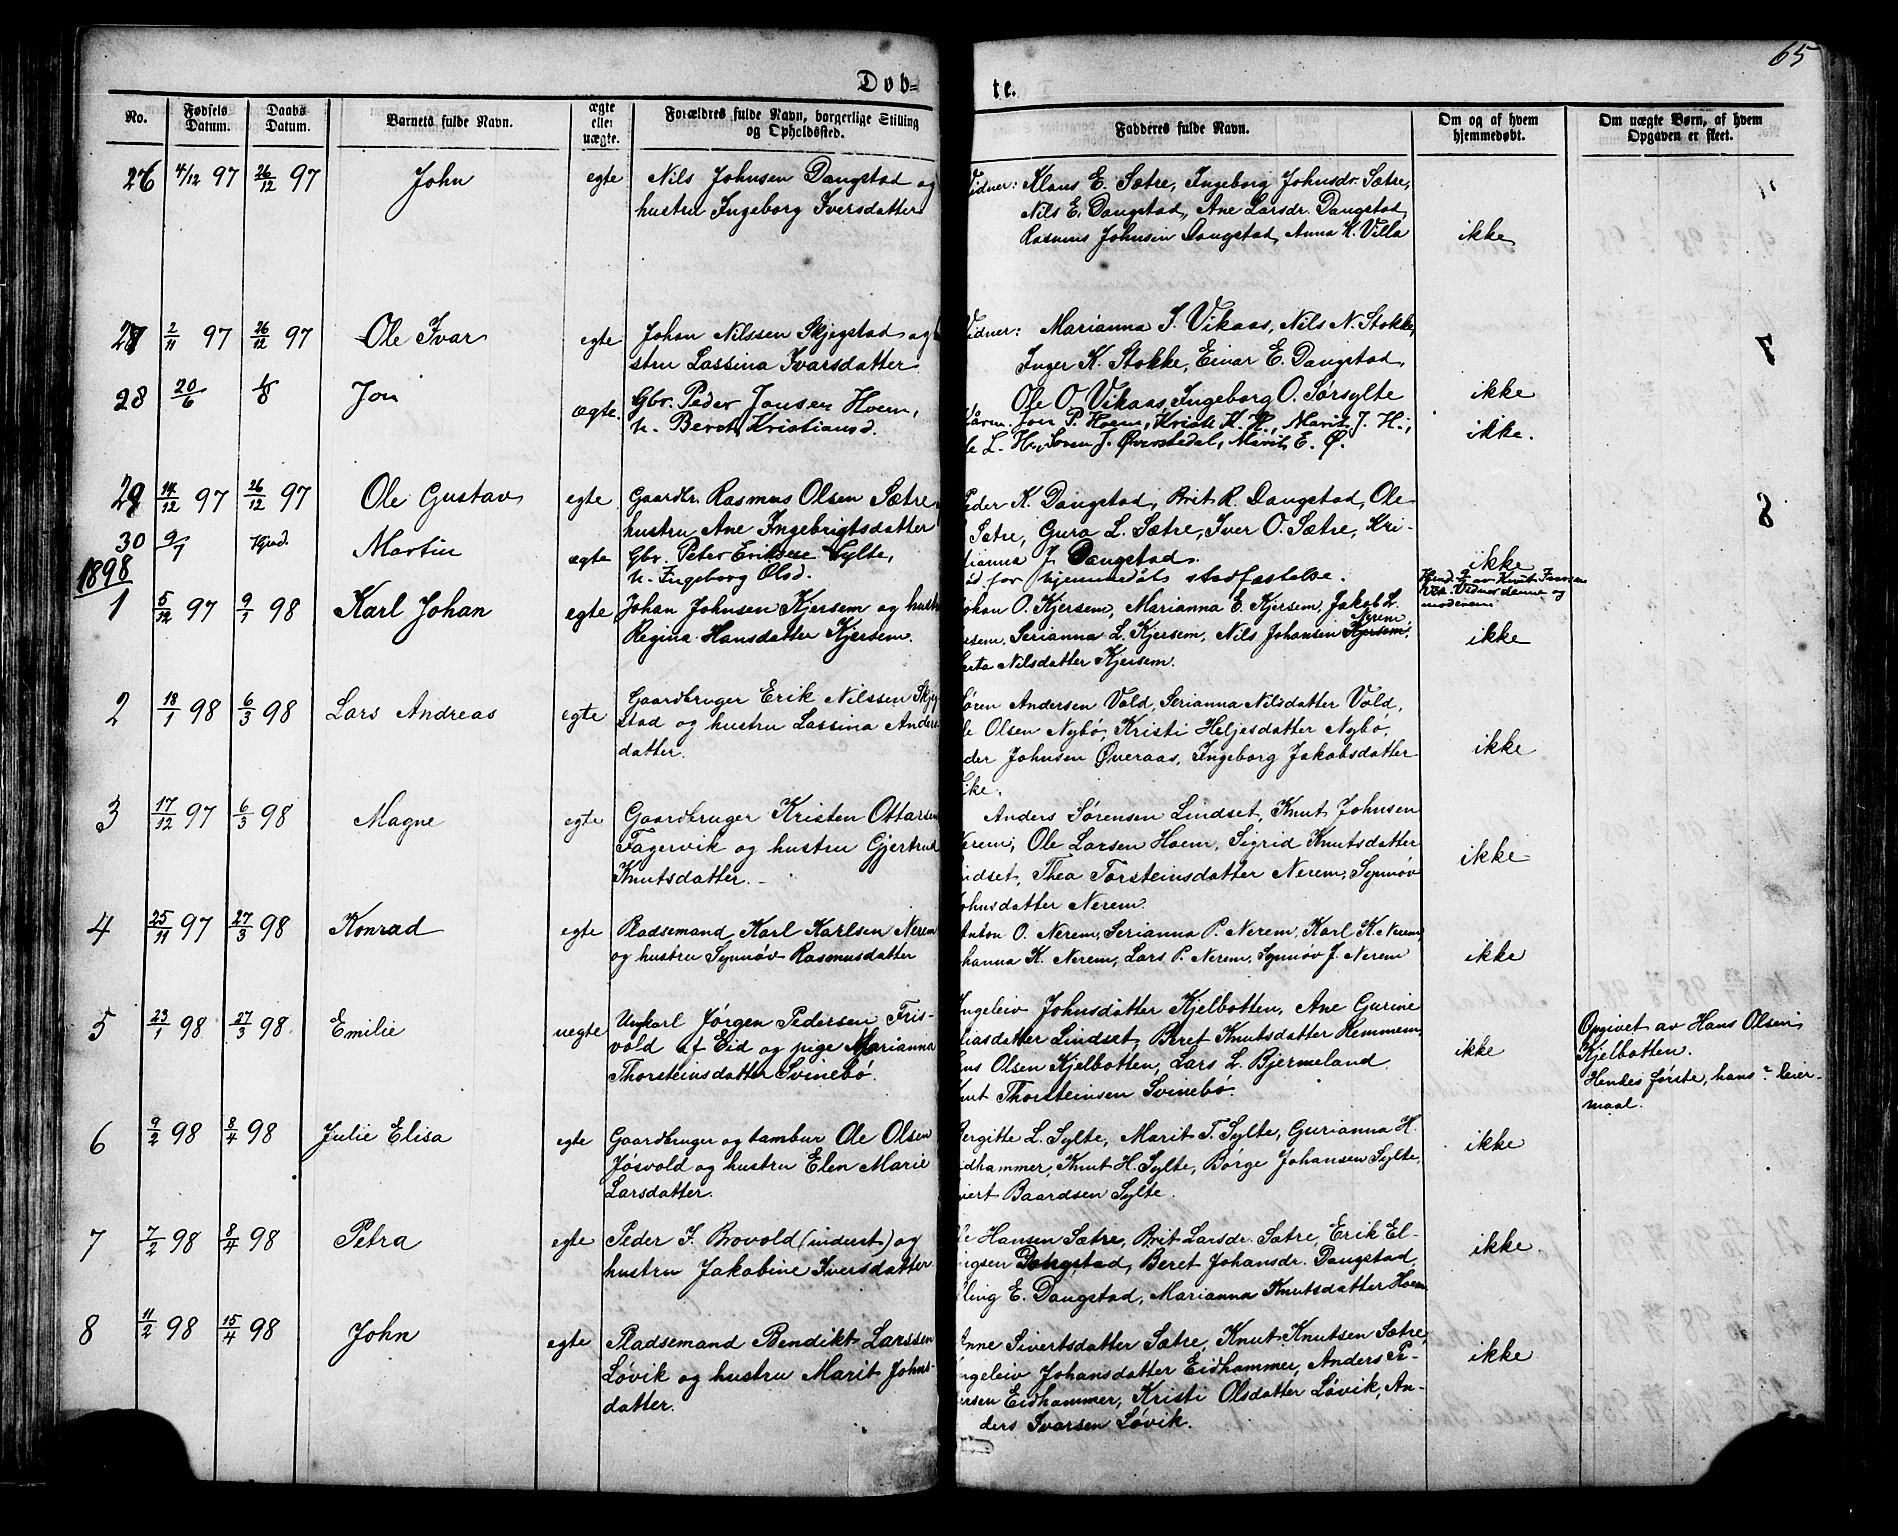 65
Døb- te.
No. Fødsels Datum. Daabs Datum. Barnets fulde Navn. ægte eller uægte. Forældres fulde Navn, borgerlige Stilling og Opholdssted. Fadderes fulde Navn. Om og af hvem hjemmedøbt. Om uægte Børn, af hvem Opgaven er skeet.
26 4/12 97 26/12 97 John egte Nils Johnsen Dangstad og
hustru Ingeborg Iversdatter
Vidner: Klaus E. Sætre, Ingeborg Johnsdr. Sætre,
Nils E. Dangstad, Ane Larsdr. Dangstad,
Rasmus Johnsen Dangstad, Anna K. Villa
ikke
27 2/11 97 26/12 97 Ole Ivar egte Johan Nilssen Skjegstad og
stru Lassina Ivarsdatter
Vidner: Marianna I. Vikaas, Nils N. Stokke,
Inger K. Stokke, Einar E. Dangstad,
Ole O. Vikaas, Ingeborg O. Sørsylte
ikke
28 20/6 1/8 Jon ægte. Gbr. Peder Jonsen Hoem,
h. Beret Kristiansd.
Jon P. Hoem, Krist. K. H., Marit J. H.,
L. H., Søren J. Øverstedal, Marit E. Ø.
ikke.
29 14/12 97 26/12 97 Ole Gustav egte Gaardbr. Rasmus Olsen Sætre
hustru Ane Ingebrigtsdatter
Peder K. Dangstad, Brit R. Dangstad, Ole
Sætre, Guro L. Sætre, Iver O. Sætre, Kri-
stianna J. Dangstad.
ikke
30 9/7 Hjmd. Martin ægte Gbr. Peter Eriksen Sylte,
h. Ingeborg Olsd.
for hjemmedåbs stadfæstelse.
1898
1 5/12 97 9/1 98 Karl Johan egte Johan Johnsen Kjersem og hust
Regina Hansdatter Kjersem.
Johan O. Kjersem, Marianna E. Kjersem, Jakob L.
Kjersem, Serianna L. Kjersem, Nils Johansen Kjersem, Nerem
Nilsdatter Kjersem.
ikke
2 18/1 98 6/3 98 Lars Andreas egte Gaardbruger Erik Nilssen Skjeg
stad og hustru Lassina Anders
datter.
Søren Andersen Vold, Serianna Nilsdatter Vold,
Ole Olsen Nybø, Kristi Heljesdatter Nybø,
Peder Johnsen Øveraas, Ingeborg Jakobsdatter
ikke
3 17/12 97 6/3 98 Magne egte Gaardbruger Kristen Ottarsen
Fagervik og hustru Gjertrud
Knutsdatter.
Anders Sørensen Lindset, Knut Johnsen
Nerem, Ole Larsen Hoem, Sigrid Knutsdatter
Lindset, Thea Torsteinsdatter Nerem, Synnøv
Johnsdatter Nerem.
ikke
4 25/11 97 27/3 98 Konrad egte Pladsemand Karl Karlsen Nerem
og hustru Synnøv Rasmusdatter
Anton O. Nerem, Serianna P. Nerem, Karl K. Nerem,
Johanna K. Nerem, Lars P. Nerem, Synnøv J. Nerem
ikke
5 23/1 98 27/3 98 Emilie uegte Ungkarl Jørgen Pedersen Fris-
vold af Eid og pige Marianna
Thorsteinsdatter Svinebø.
Ingeleiv Johnsdatter Kjelbotten, Ane Gurine
Eliasdatter Lindset, Beret Knutsdatter Hemmem,
Hans Olsen Kjelbotten, Lars L. Bjermeland
Knut Thorsteinsen Svinebø.
ikke
Opgivet av Hans Olsen
Kjelbotten.
Hendes første, hans ? leier-
maal.
6 9/2 98 8/4 98 Julie Elisa egte Gaardbruger og tambur Ole Olsen
Jøsvold og hustru Elen Marie
Larsdatter.
Bergitte L. Sylte, Marit T. Sylte, Gurianna H.
Eidhammer, Knut H. Sylte, Børge Johansen Sylte,
Sivert Baardsen Sylte.
ikke
7 7/2 98 8/4 98 Petra egte Peder J. Bovold (inderst) og
hustru Jakobine Iversdatter
Ole Hansen Sætre, Brit Larsdr. Sætre, Erik El-
lingsen Dangstad, Beret Johansdr. Dangstad,
Elling E. Dangstad, Marianna Knutsdatter Hoem
ikke.
8 11/2 98 15/4 98 John egte Pladsemand Bendikt Larssen
Løvik og hustru Marit Johns-
datter.
Anne Sivertsdatter Sætre, Knut Knutsen Sætre,
Ingeleiv Johansdatter Eidhammer, Anders Pe-
dersen Eidhammer, Kristi Olsdatter Løvik, An-
ders Ivarsen Løvik.
ikke